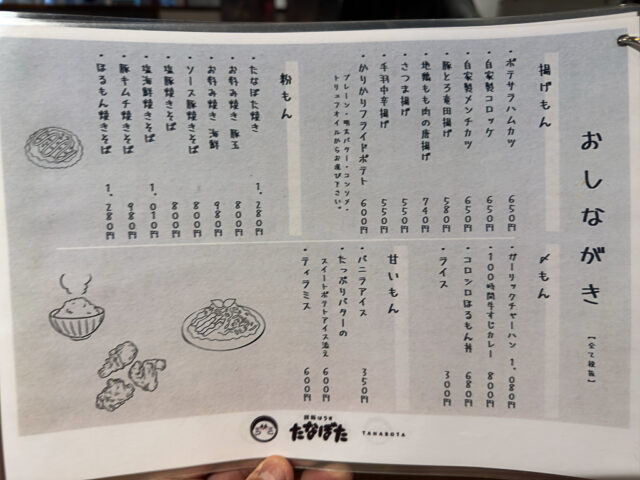 おしながき
【全て税抜】
揚げもん
・ポテサラハムカツ 650円
・自家製コロッケ 650円
・自家製メンチカツ 650円
・豚とろ竜田揚げ 580円
・地鶏もも肉の唐揚げ 740円
・さつま揚げ 550円
・手羽中辛揚げ 550円
・かりかりフライドポテト 600円
プレーン・明太バター・コンソメ・
トリュフオイルからお選び下さい。
粉もん
・たなぼた焼き 1,280円
・お好み焼き 豚玉 800円
・お好み焼き 海鮮 980円
・ソース豚焼きそば 800円
・塩豚焼きそば 800円
・塩海鮮焼きそば 1,010円
・豚キムチ焼きそば 980円
・ほろもん焼きそば 1,280円
〆もん
・ガーリックチャーハン 1,080円
・100時間牛すじカレー 800円
・コロンロほろもん丼 680円
・ライス 300円
甘いもん
・バニラアイス 350円
・たっぷりバターの
スイートポテトアイス添え 600円
・ティラミス 600円
たなぼた
TANABOTA